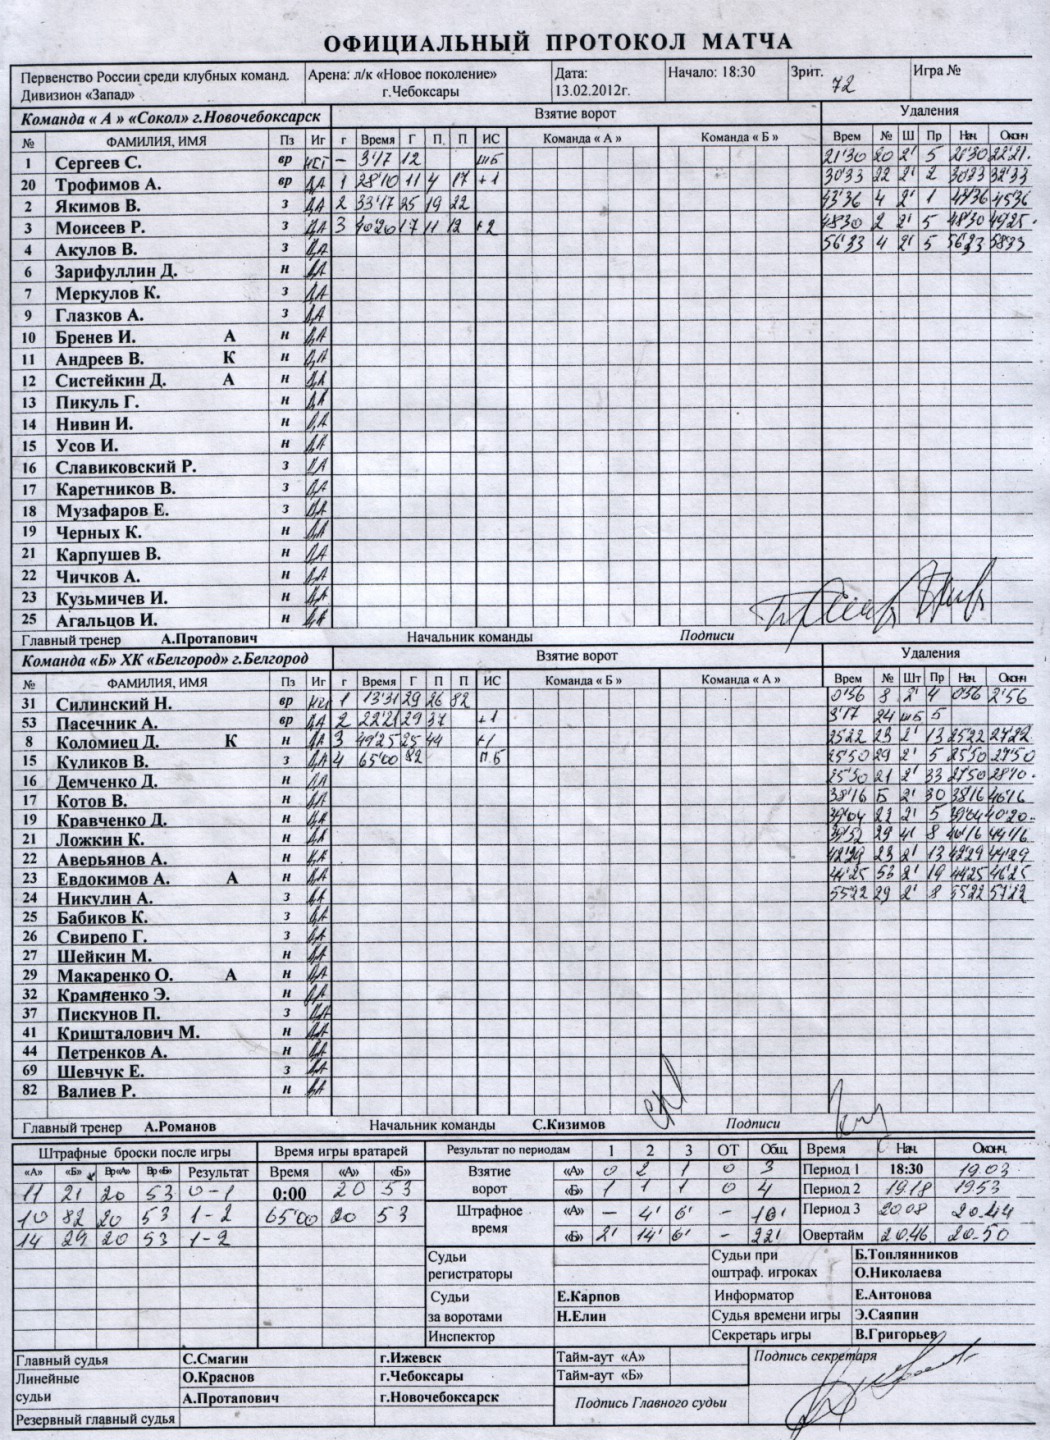 ОФИЦИАЛЬНЫЙ ПРОТОКОЛ МАТЧА
Первенство России среди клубных команд. Дивизион «Запад» Арена: л/к «Новое поколение» г.Чебоксары Дата: 13.02.2012г. Начало: 18:30 Зрит. 72 Игра №
Команда « А » «Сокол» г.Новочебоксарск Взятие ворот Удаления
№ ФАМИЛИЯ, ИМЯ Пз Иг г Время Г П. П ИС Команда « А » Команда « Б » Врем № Ш Пр Нач. Оконч
1 Сергеев С. вр – 3'17 12 шб 21'30 20 2' 5 21'30 22'21
20 Трофимов А. вр ДА 1 28'10 11 4 17 +1 30'33 22 2' 2 30'33 32'33
2 Якимов В. з ДА 2 33'17 25 19 22 43'36 4 2' 1 43'36 45'36
3 Моисеев Р. з ДА 3 40'20 17 11 12 +2 48'30 2 2' 5 48'30 49'25
4 Акулов В. з ДА 56'33 4 2' 5 56'33 58'33
6 Зарифуллин Д. н ДА
7 Меркулов К. з ДА
9 Глазков А. з ДА
10 Бренев И. А н ДА
11 Андреев В. К н ДА
12 Систейкин Д. А н ДА
13 Пикуль Г. н ДА
14 Нивин И. н ДА
15 Усов И. н ДА
16 Славиковский Р. з ДА
17 Каретников В. з ДА
18 Музафаров Е. з ДА
19 Черных К. н ДА
21 Карпушев В. н ДА
22 Чичков А. н ДА
23 Кузьмичев И. н ДА
25 Агальцов И. н ДА
Главный тренер А.Протапович Начальник команды Подписи
Команда «Б» ХК «Белгород» г.Белгород Взятие ворот Удаления
№ ФАМИЛИЯ, ИМЯ Пз Иг г Время Г П П ИС Команда « Б » Команда « А » Врем № Шт Пр Нач. Оконч
31 Силинский Н. вр 1 13'31 29 26 82 0'56 8 2' 4 0'56 2'56
53 Пасечник А. вр ДА 2 22'21 29 37 +1 3'17 24 шб 5
8 Коломиец Д. К н ДА 3 49'25 25 44 +1 25'22 23 2' 13 25'22
15 Куликов В. з ДА 4 65'00 82 пб 25'50 29 2' 5 25'50 27'50
16 Демченко Д. н ДА 25'50 21 2' 33 27'50 28'10
17 Котов В. н ДА 38'16 Б 2' 30 38'16 40'16
19 Кравченко Д. н ДА 39'04 22 2' 5 39'04 40'20
21 Ложкин К. н ДА 39'52 29 4' 8 40'16 44'16
22 Аверьянов А. н ДА 42'29 23 2' 13 42'29 44'29
23 Евдокимов А. А н ДА 44'25 53 2' 19 44'25 46'25
24 Никулин А. з ДА 55'22 29 2' 8 55'22 57'22
25 Бабиков К. з ДА
26 Свирепо Г. з ДА
27 Шейкин М. н ДА
29 Макаренко О. А н ДА
32 Крамненко Э. н ДА
37 Пискунов П. з ДА
41 Кришталович М. н ДА
44 Петренков А. н ДА
69 Шевчук Е. з ДА
82 Валиев Р. н ДА
Главный тренер А.Романов Начальник команды С.Кизимов Подписи
Штрафные броски после игры Время игры вратарей Результат по периодам 1 2 3 ОТ Общ Время Нач. Оконч.
«А» «Б» Вр«А» Вр«Б» Результат Время «А» «Б» Взятие ворот «А» 0 2 1 0 3 Период 1 18:30 19.03
11 21 20 53 0-1 0:00 20 53 «Б» 1 1 1 0 4 Период 2 19.18 19.53
10 82 20 53 1-2 65'00 20 53 Штрафное время «А» – 4' 6' – 10' Период 3 20.08 20.44
14 29 20 53 1-2 «Б» 2' 14' 6' – 22' Овертайм 20.46 20.50
Судьи регистраторы Судьи при оштраф. игроках Б.Топлянников
О.Николаева
Судьи за воротами Е.Карпов Информатор Е.Антонова
Н.Елин Судья времени игры Э.Саяпин
Инспектор Секретарь игры В.Григорьев
Главный судья С.Смагин г.Ижевск Тайм-аут «А» Подпись секретаря
Линейные судьи О.Краснов г.Чебоксары Тайм-аут «Б»
А.Протапович г.Новочебоксарск Подпись Главного судьи
Резервный главный судья